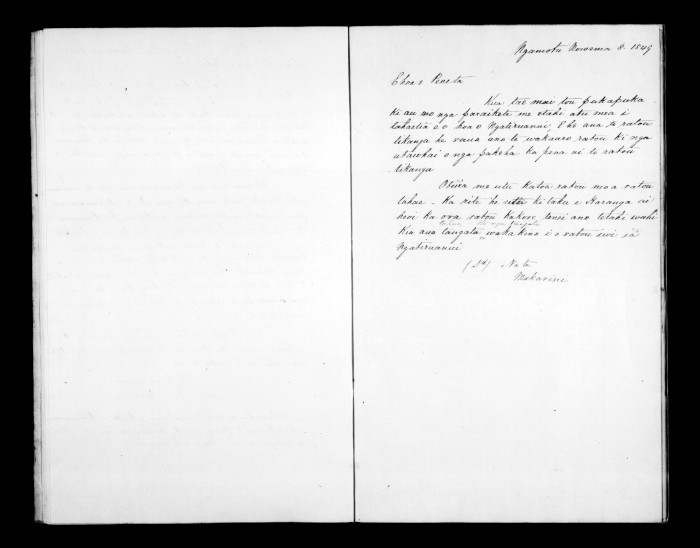 Ngamotu Nowema 8. 1849
E hoa e Peneta
Kua tae mai tou pukapuka
ki au mo nga paraikete me etahi atu mea i
tahaetia e o hoa o Ngatiruanui, E he ana te ratou
tikanga he rawa ano te wakaaro ratou ki nga
utauhai o nga pakeha ka pena ai te ratou
tikanga
Otiia me utu katoa ratou mo a ratou
tahae – Ka rite he utu ki taku i Haranga ai
hei ka ora ratou kahore, tenei ano tetahi wahi
Kia ana tangata waka kino i o ratou iwi i a
Ngatiruanui
(Sd) Na te
Makarini